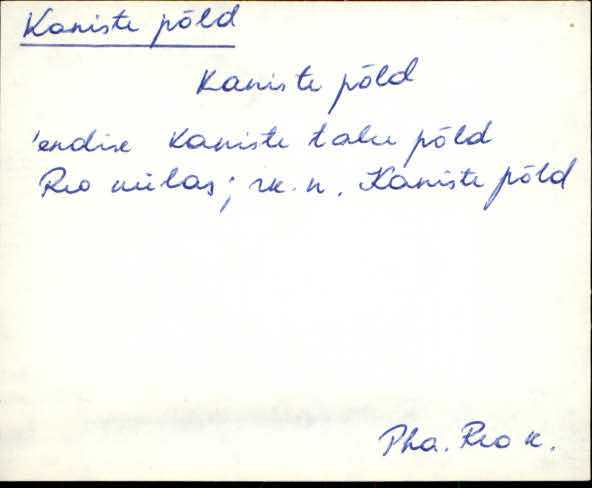 Kaniste põld
Kaniste põld
'endise Kaniste talu põld
Reo külas; rk. n. Kaniste põld
Pha. Reo k.